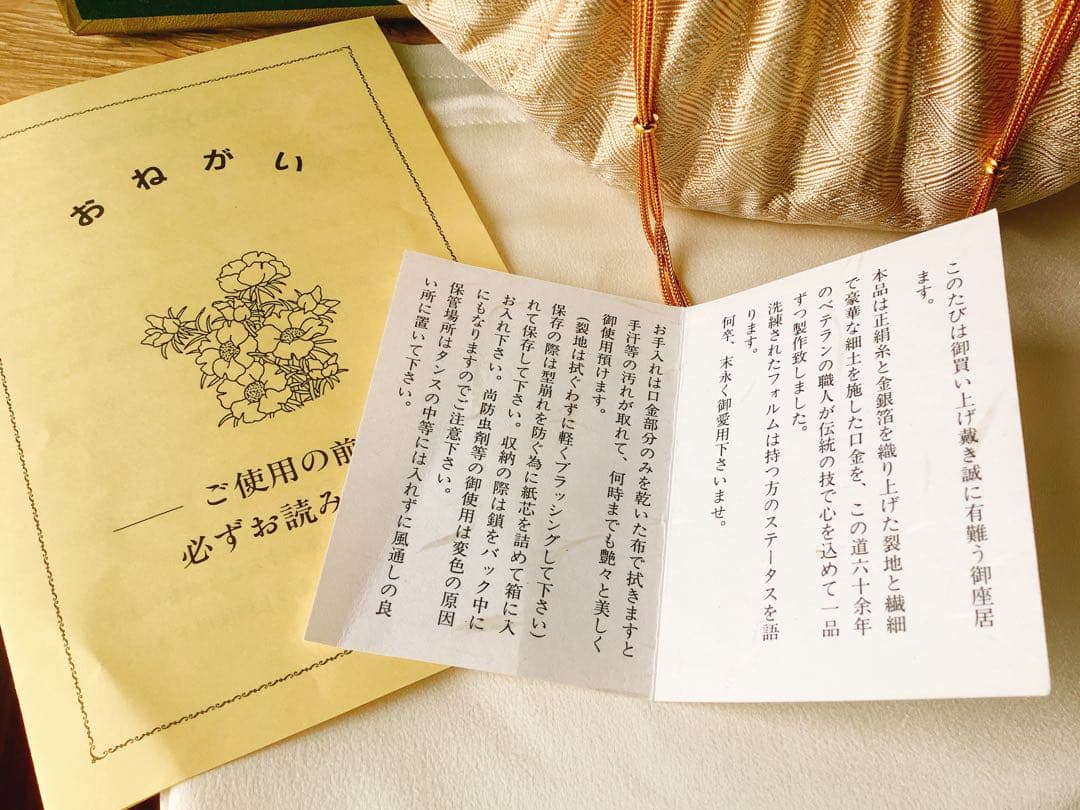 おねがい
ご使用の前
必ずお読み
このたびは御買い上げ戴き誠に有難う御座居
ます。
本品は正絹糸と金銀箔を織り上げた裂地と繊細
で豪華な細土を施した口金を、この道六十余年
のベテランの職人が伝統の技で心を込めて一品
ずつ製作致しました。
洗練されたフォルムは持つ方のステータスを語
ります。
何卒、末永く御愛用下さいませ。
お手入れは口金部分のみを乾いた布で拭きますと
手汗等の汚れが取れて、何時までも艶々と美しく
御使用預けます。
(裂地は拭くわずに軽くブラッシングして下さい)
保存の際は型崩れを防ぐ為に紙芯を詰めて箱に入
れて保存して下さい。収納の際は鎖をバック中に
お入れ下さい。尚防虫剤等の御使用は変色の原因
にもなりますのでご注意下さい。
保管場所はタンスの中等には入れずに風通しの良
い所に置いて下さい。